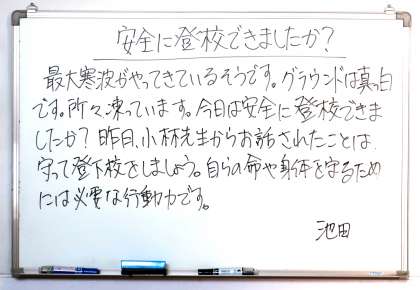 安全に登校できましたか?
最大寒波がやってきているそうです。グラウンドは真っ白
です。所々凍っています。今日は安全に登校できま
したか?昨日、小林先生からお話されたことは、
守って登下校をしましょう。自らの命や身体を守るため
には必要な行動力です。
池田